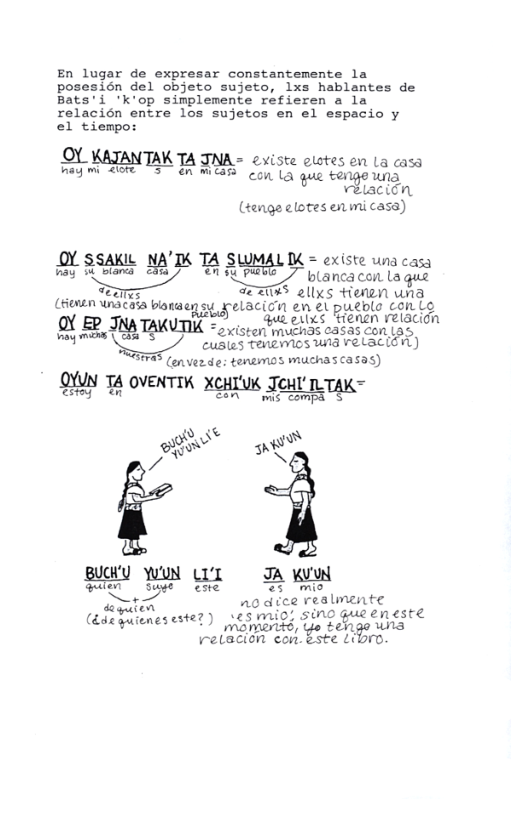 En lugar de expresar constantemente la
posesión del objeto sujeto, lxs hablantes de
Bats'i 'k'op simplemente refieren a la
relación entre los sujetos en el espacio y
el tiempo:
OY KAJANTAK TA JNA = existe elotes en la casa
hay mi elote s en mi casa
con la que tengo una
relación
(tengo elotes en mi casa)
OY SSAKIL NA'IK TA SLUMAL IK = existe una casa
hay su blanca casa en su pueblo
blanca con la que
de ellxs de ellxs ellxs tienen una
(tienen una casa blanca en su relación en el pueblo con lo
pueblo) que ellxs tienen relación
OY EP JNATAKUTIK = existen muchas casas con las
hay muchas casa s
cuales tenemos una relación)
nuestras (en vez de: tenemos muchas casas)
OYUN TA OVENTIK XCHI'UK JCHI'ILTAK =
estoy en con mis compa s
BUCH'U
YU'UN LI'E
JA KU'UN
BUCH'U YU'UN LI'I JA KU'UN
quien suyo este es mio
+
de quien
(¿de quien es este?)
no dice realmente
'es mio', sino que en este
momento, yo tengo una
relación con este libro.